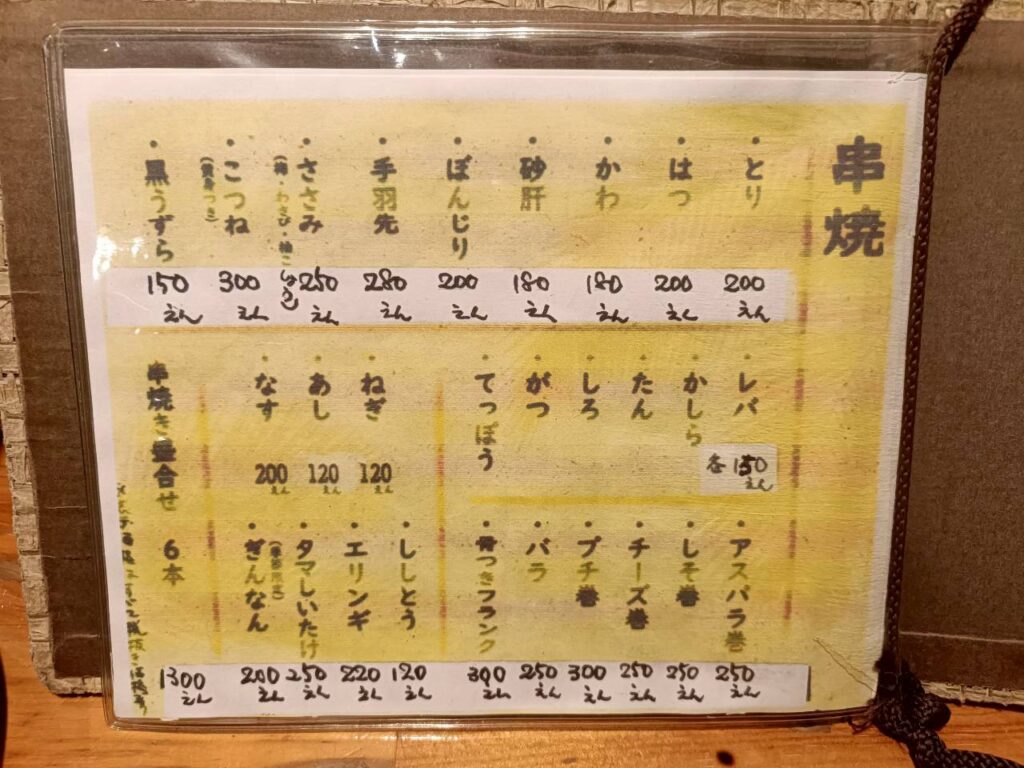 串焼
・とり 200えん
・はつ 200えん
・かわ 180えん
・砂肝 180えん
・ぼんじり 200えん
・手羽先 280えん
・ささみ 250えん
(梅・わさび・柚こしょう)
・こつね 300えん
(黄身つき)
・黒うずら 150えん
・レバ
・かしら
・たん
・しろ
・がつ
・てっぽう
各150えん
・アスパラ巻 250えん
・しそ巻 250えん
・チーズ巻 250えん
・プチ巻 300えん
・バラ 250えん
・骨つきフランク 300えん
・ねぎ 120えん
・あし 120えん
・なす 200えん
・ししとう 120えん
・エリンギ 220えん
・タマしいたけ 250えん
・ぎんなん 200えん
(季節限定)
串焼き盛合せ 6本 1300えん